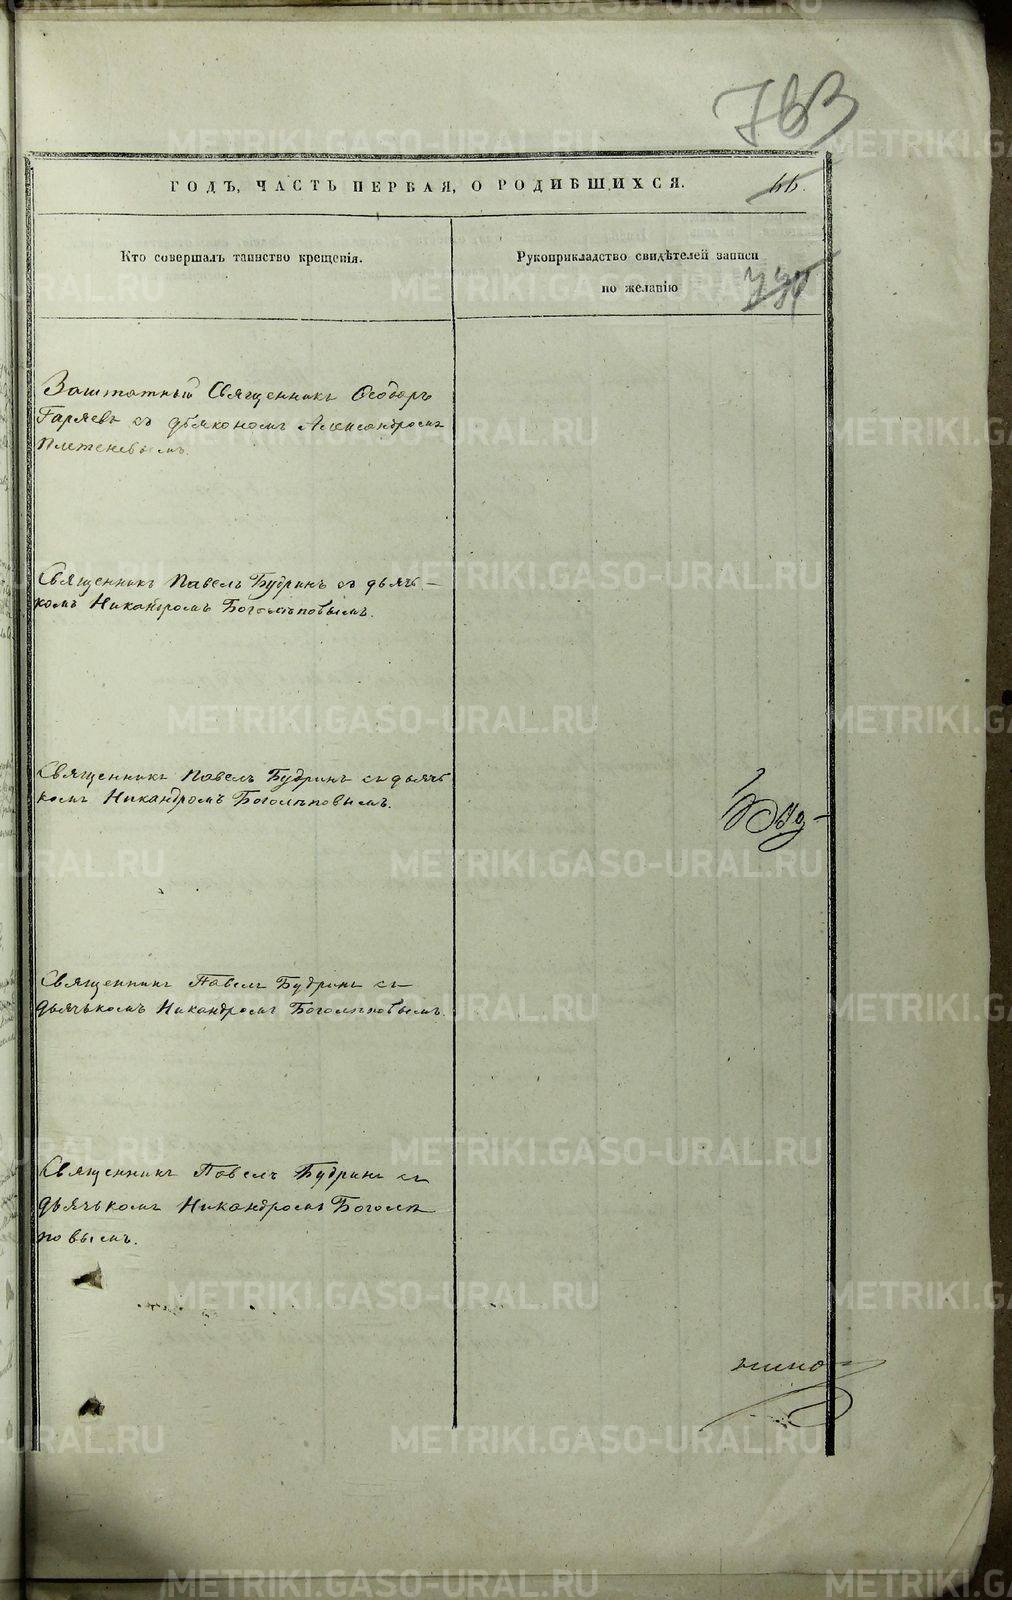 763
ГОДЪ, ЧАСТЬ ПЕРВАЯ, О РОДИВШИХСЯ.
66.
Кто совершалъ таинство крещенія.
Рукоприкладство свидѣтелей записи
по желанію
Заштатный Священникъ Ѳеодоръ
Гаряевъ съ дьякономъ Александромъ
Плетеневымъ.
Священникъ Павелъ Будринъ съ дьячь-
комъ Никандромъ Боголѣповымъ.
Священникъ Павелъ Будринъ съ дьячь
комъ Никандромъ Боголѣповымъ.
Священникъ Павелъ Будринъ съ
дьячькомъ Никандромъ Боголѣповымъ.
Священникъ Павелъ Будринъ съ
дьячькомъ Никандромъ Боголѣ
повымъ.
METRIKI.GASO-URAL.RU